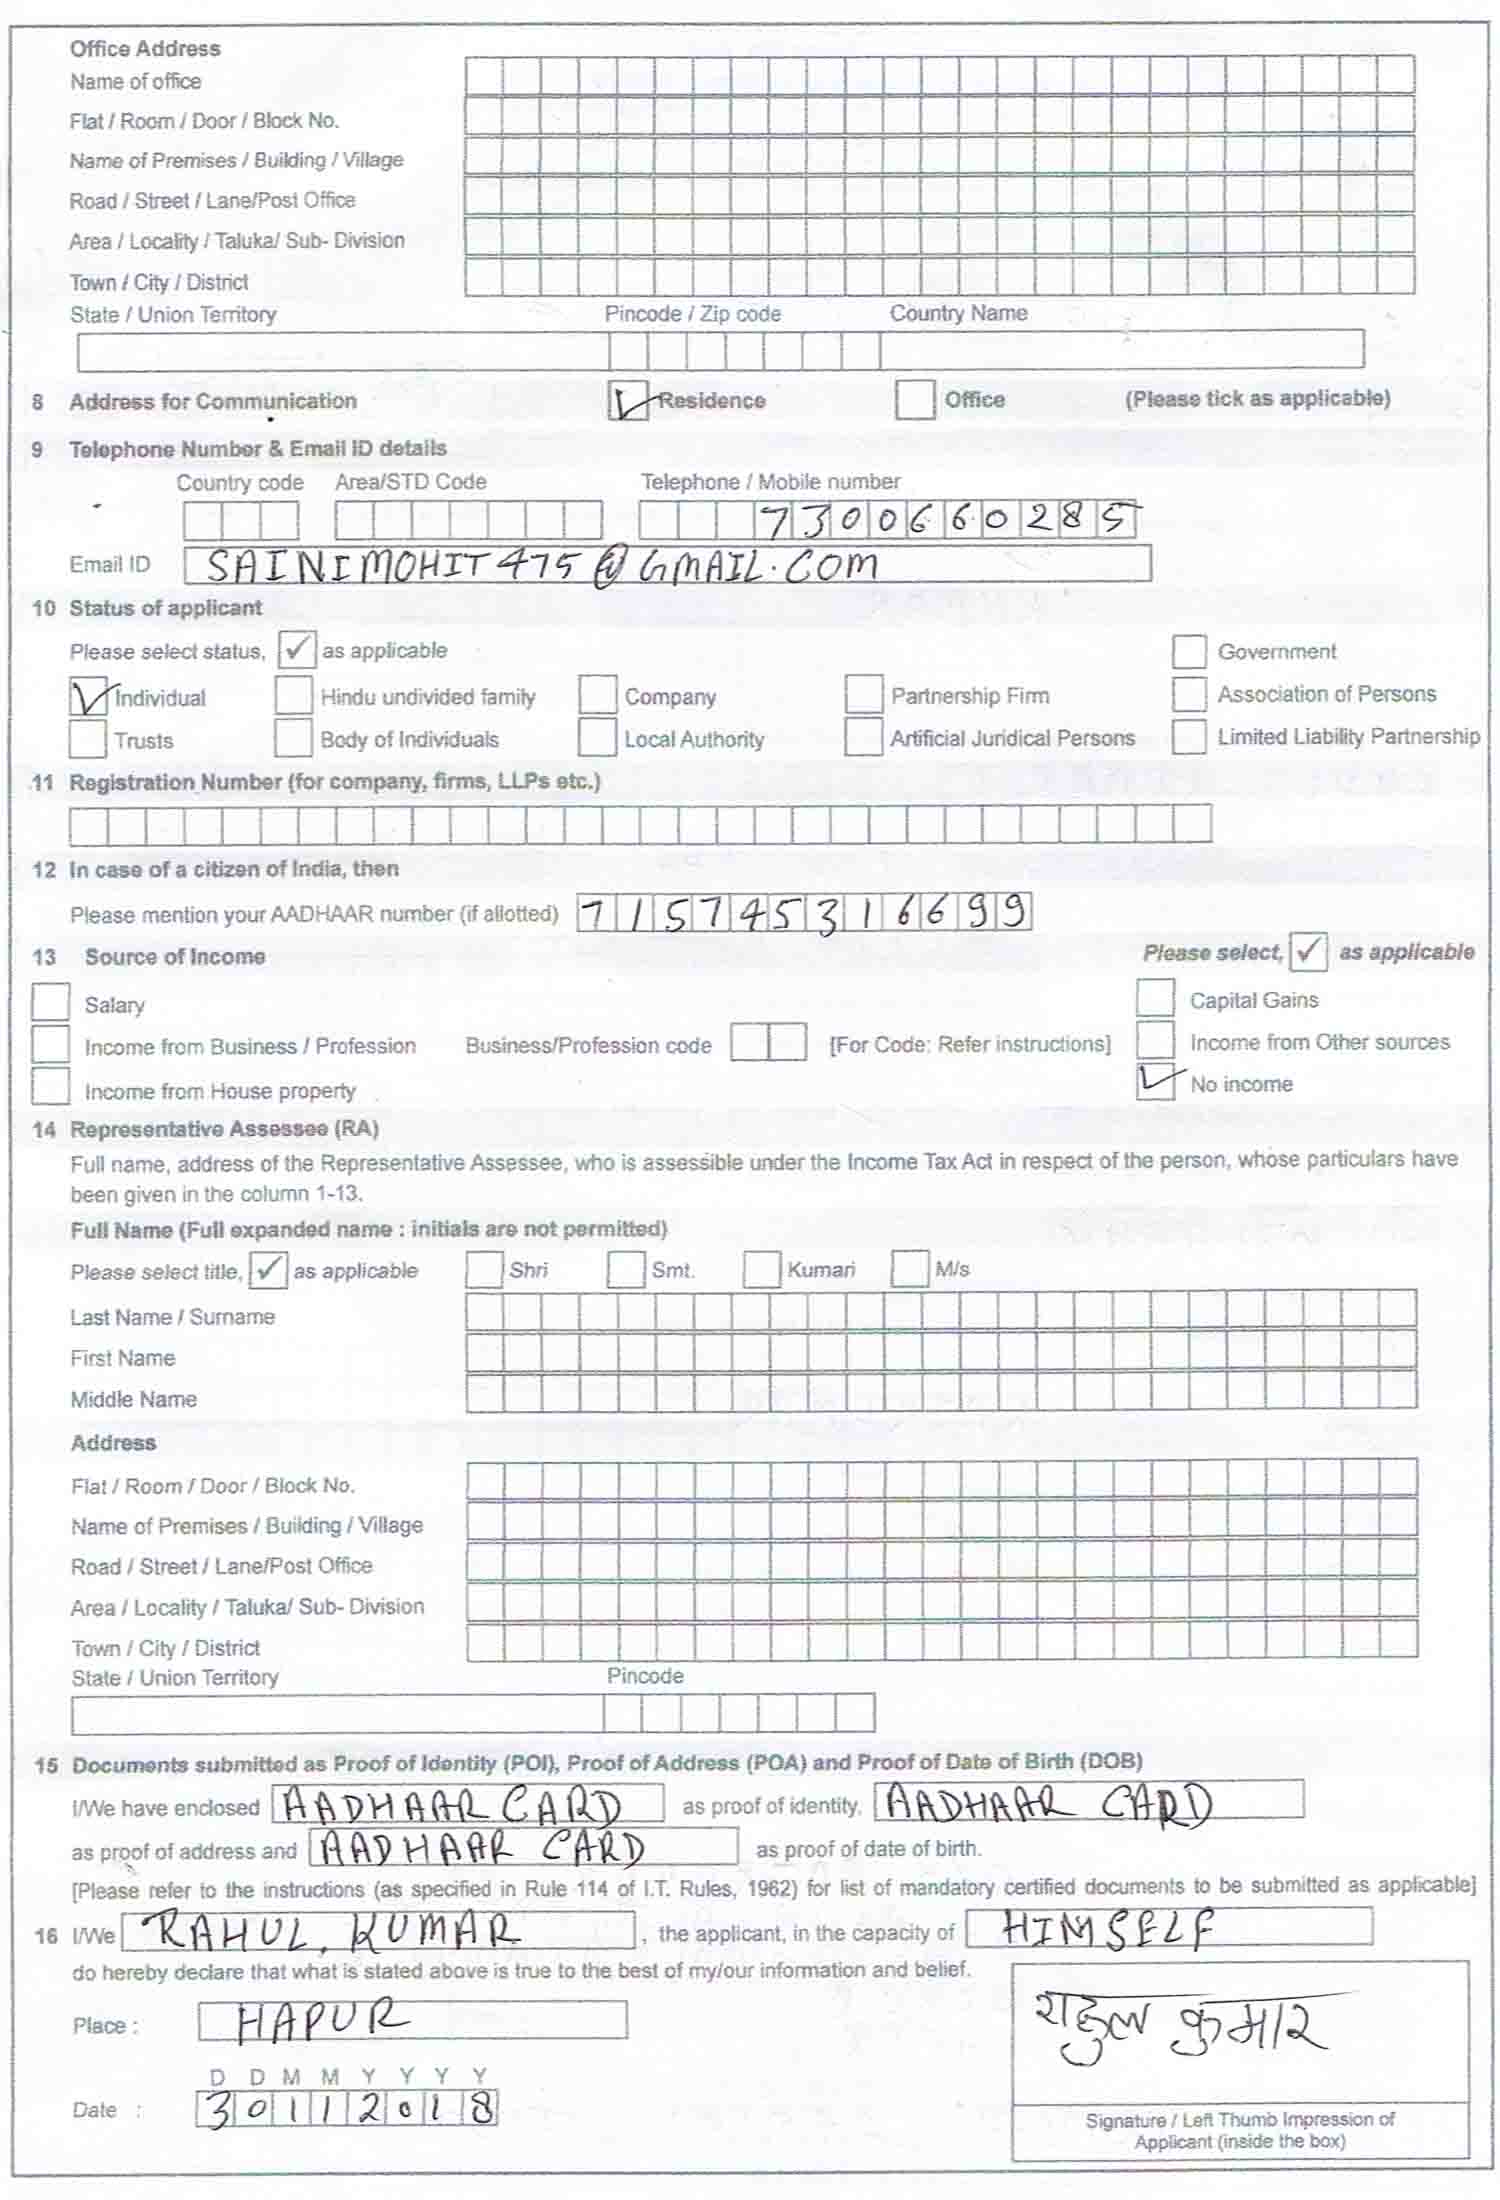 Office Address
Name of office
Flat / Room / Door / Block No.
Name of Premises / Building / Village
Road / Street / Lane/Post Office
Area / Locality / Taluka/ Sub- Division
Town / City / District
State / Union Territory Pincode / Zip code Country Name
8 Address for Communication Residence Office (Please tick as applicable)
9 Telephone Number & Email ID details
Country code Area/STD Code Telephone / Mobile number
7300660285
Email ID SAINIMOHIT475@GMAIL.COM
10 Status of applicant
Please select status, ✓ as applicable Government
Individual Hindu undivided family Company Partnership Firm Association of Persons
Trusts Body of Individuals Local Authority Artificial Juridical Persons Limited Liability Partnership
11 Registration Number (for company, firms, LLPs etc.)
12 In case of a citizen of India, then
Please mention your AADHAAR number (if allotted) 715745316699
13 Source of Income Please select, ✓ as applicable
Salary Capital Gains
Income from Business / Profession Business/Profession code [For Code: Refer instructions] Income from Other sources
Income from House property No income
14 Representative Assessee (RA)
Full name, address of the Representative Assessee, who is assessible under the Income Tax Act in respect of the person, whose particulars have
been given in the column 1-13.
Full Name (Full expanded name : initials are not permitted)
Please select title, ✓ as applicable Shri Smt. Kumari M/s
Last Name / Surname
First Name
Middle Name
Address
Flat / Room / Door / Block No.
Name of Premises / Building / Village
Road / Street / Lane/Post Office
Area / Locality / Taluka/ Sub- Division
Town / City / District
State / Union Territory Pincode
15 Documents submitted as Proof of Identity (POI), Proof of Address (POA) and Proof of Date of Birth (DOB)
I/We have enclosed AADHAAR CARD as proof of identity, AADHAAR CARD
as proof of address and AADHAAR CARD as proof of date of birth.
[Please refer to the instructions (as specified in Rule 114 of I.T. Rules, 1962) for list of mandatory certified documents to be submitted as applicable]
16 I/We RAHUL KUMAR, the applicant, in the capacity of HIMSELF
do hereby declare that what is stated above is true to the best of my/our information and belief.
Place : HAPUR
राहुल कुमार
D D M M Y Y Y Y
Date : 30112018
Signature / Left Thumb Impression of
Applicant (inside the box)